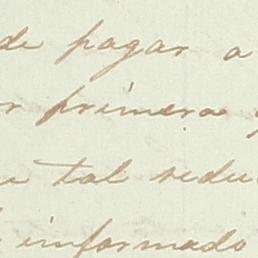 de pagar a
primera
tal redu
informado